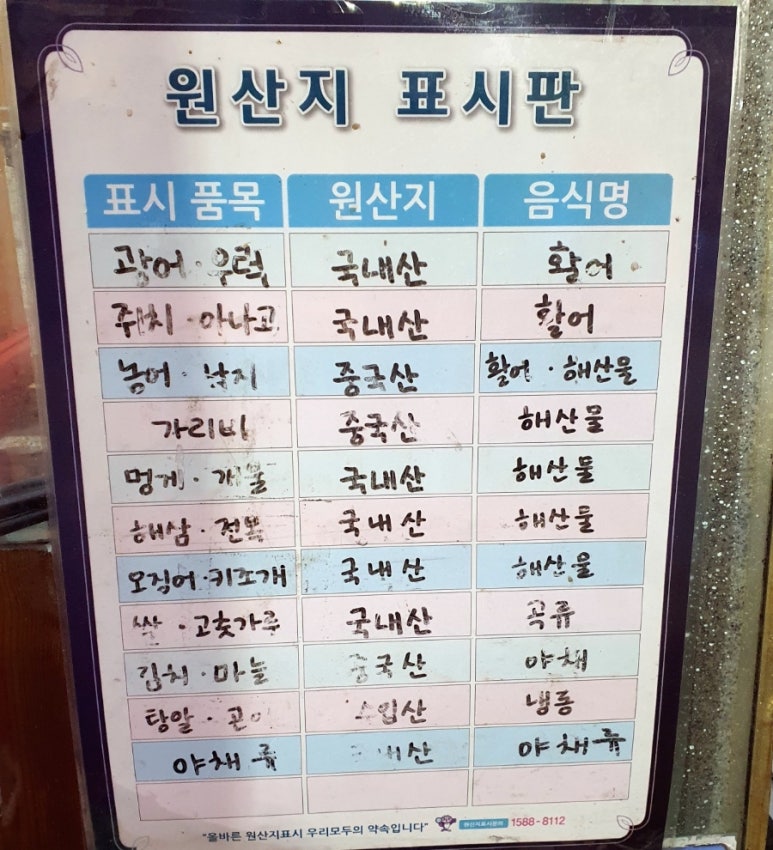 원산지 표시판
표시 품목 원산지 음식명
광어 · 우럭 국내산 활어
쥐치 · 아나고 국내산 활어
농어 · 낙지 중국산 활어 · 해산물
가리비 중국산 해산물
멍게 · 개불 국내산 해산물
해삼 · 전복 국내산 해산물
오징어 · 키조개 국내산 해산물
쌀 · 고춧가루 국내산 곡류
김치 · 마늘 중국산 야채
탕알 · 수입산 냉동
야채류 야채류
"올바른 원산지표시 우리모두의 약속입니다" 원산지표시문의 1588-8112